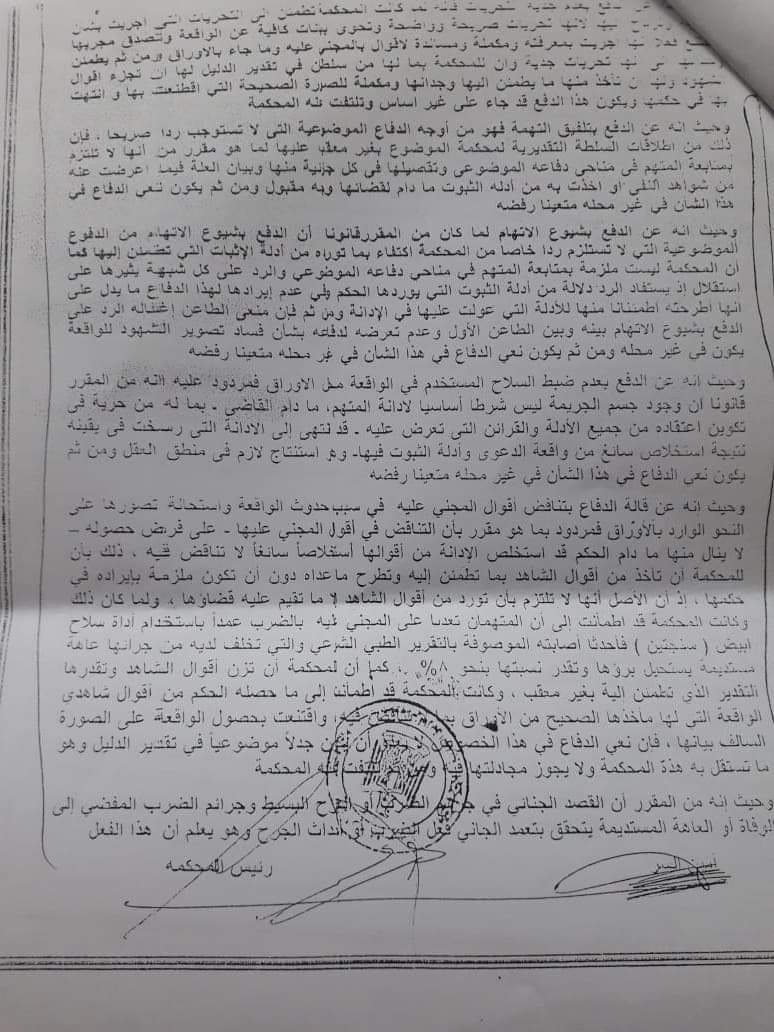 الدفع بعدم جدية التحريات فإنه لما كانت المحكمة تطمئن الى التحريات التى اجريت بشأن
لانها تحريات صريحة وواضحة وتحوى بينات كافية عن الواقعة وتصدق مجريها
اجريت بمعرفته ومكملة ومساندة لاقوال المجني عليه وما جاء بالاوراق ومن ثم يطمئن
تحريات جدية وان للمحكمة بما لها من سلطن في تقدير الدليل لها ان تجزء اقوال
شهوده ولها ان تأخذ منها ما يطمئن اليها وجدانها ومكملة للصورة الصحيحة التي اقطنعت بها و انتهت
بها في حكمها ويكون هذا الدفع قد جاء على غير اساس وتلتفت نله المحكمة
وحيث انه عن الدفع بتلفيق التهمة فهو من أوجه الدفاع الموضوعية التى لا تستوجب ردا صريحا ، فإن
ذلك من اطلاقات السلطة التقديرية لمحكمة الموضوع بغير معقب عليها لما هو مقرر من أنها لا تلتزم
بمتابعة المتهم في مناحي دفاعه الموضوعى وتفصيلها فى كل جزئية منها وبيان العلة فيما اعرضت عنه
من شواهد النفى او اخذت به من أدله الثبوت ما دام لقضائها وجه مقبول ومن ثم يكون نعي الدفاع في
هذا الشأن في غير محله متعينا رفضه
وحيث انه عن الدفع بشيوع الاتهام لما كان من المقرر قانونا أن الدفع بشيوع الاتهام من الدفوع
الموضوعية التي لا تستلزم ردا خاصا من المحكمة اكتفاء بما تورده من أدلة الإثبات التي تطمئن إليها كما
أن المحكمة ليست ملزمة بمتابعة المتهم في مناحي دفاعه الموضوعي والرد على كل شبهة يثيرها على
استقلال إذ يستفاد الرد دلالة من أدلة الثبوت التي يوردها الحكم وفي عدم إيرادها لهذا الدفاع ما يدل على
انها اطرحته اطمئنانا منها للأدلة التي عولت عليها في الإدانة ومن ثم فإن منعى الطاعن إغفاله الرد على
الدفع بشيوع الاتهام بينه وبين الطاعن الأول وعدم تعرضه لدفاعه بشأن فساد تصوير الشهود للواقعة
يكون في غير محله ومن ثم يكون نعي الدفاع في هذا الشأن في غير محله متعينا رفضه
وحيث إنه عن الدفع بعدم ضبط السلاح المستخدم في الواقعة محل الاوراق فمردود عليه انه من المقرر
قانونا أن وجود جسم الجريمة ليس شرطا أساسيا لادانة المتهم، ما دام القاضى ـ بما له من حرية فى
تكوين اعتقاده من جميع الأدلة والقرائن التى تعرض عليه ـ قد نتهى إلى الادانة التى رسخت فى يقينه
نتيجة استخلاص سائغ من واقعة الدعوى وأدلة الثبوت فيهاـ وهو استنتاج لازم فى منطق العقل ومن ثم
يكون نعي الدفاع في هذا الشأن في غير محله متعينا رفضه
وحيث إنه عن قالة الدفاع بتناقض أقوال المجني عليه في سبب حدوث الواقعة واستحالة تصورها على
النحو الوارد بالأوراق فمردود بما هو مقرر بأن التناقض في أقوال المجني عليها - على فرض حصوله –
لا ينال منها ما دام الحكم قد استخلص الإدانة من أقوالها أستخلاصاً سائغاً لا تناقض فيه ، ذلك بأن
للمحكمة أن تأخذ من أقوال الشاهد بما تطمئن إليه وتطرح ماعداه دون أن تكون ملزمة بإيراده في
حكمها ، إذ أن الأصل أنها لا تلتزم بأن تورد من أقوال الشاهد إلا ما تقيم عليه قضاؤها ، ولما كان ذلك
وكانت المحكمة قد اطمأنت إلى أن المتهمان تعديا على المجني عليه بالضرب عمداً باستخدام أداة سلاح
أبيض ( سنجتين ) فأحدثا أصابته الموصوفة بالتقرير الطبي الشرعي والتي تخلف لديه من جرائها عاهة
مستديمة يستحيل برؤها وتقدر نسبتها بنحو ٨% ، كما أن لمحكمة أن تزن أقوال الشاهد وتقدرها
التقدير الذي تطمئن إلية بغير معقب ، وكانت المحكمة قد اطمأنت إلى ما حصله الحكم من أقوال شاهدى
الواقعة التي لها مأخذها الصحيح من الأوراق بما لا تناقض فيه، واقتنعت بحصول الواقعة على الصورة
السالف بيانها ، فإن نعي الدفاع في هذا الخصوص لا يعدو أن يكون جدلاً موضوعياً في تقدير الدليل وهو
ما تستقل به هذة المحكمة ولا يجوز مجادلتها فيه وتلتفت عنه المحكمة
وحيث إنه من المقرر أن القصد الجنائي في جرائم الضرب أو الجرح البسيط وجرائم الضرب المفضي إلى
الوفاة أو العاهة المستديمة يتحقق بتعمد الجاني فعل الضرب أو أحداث الجرح وهو يعلم أن هذا الفعل
أمين السر
رئيس المحكمه